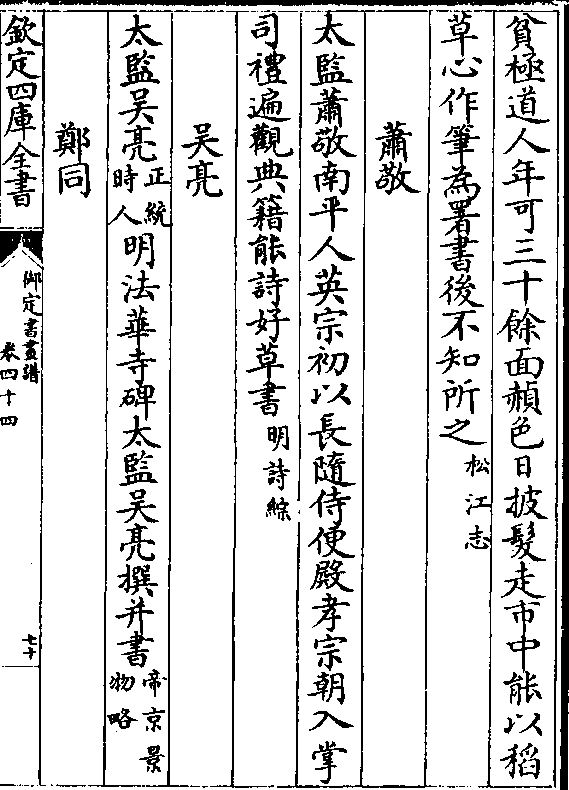 貧極道人年可三十餘面赬色日披髮走市中能以稻
草心作筆為署書後不知所之松江志
蕭敬
太監蕭敬南平人英宗初以長隨侍便殿孝宗朝入掌
司禮遍觀典籍能詩好草書明詩綜
吴亮
太監吴亮正統時人明法華寺碑太監吴亮撰并書帝京景物略
鄭同
欽定四庫全書
御定書畫譜
卷四十四
七十